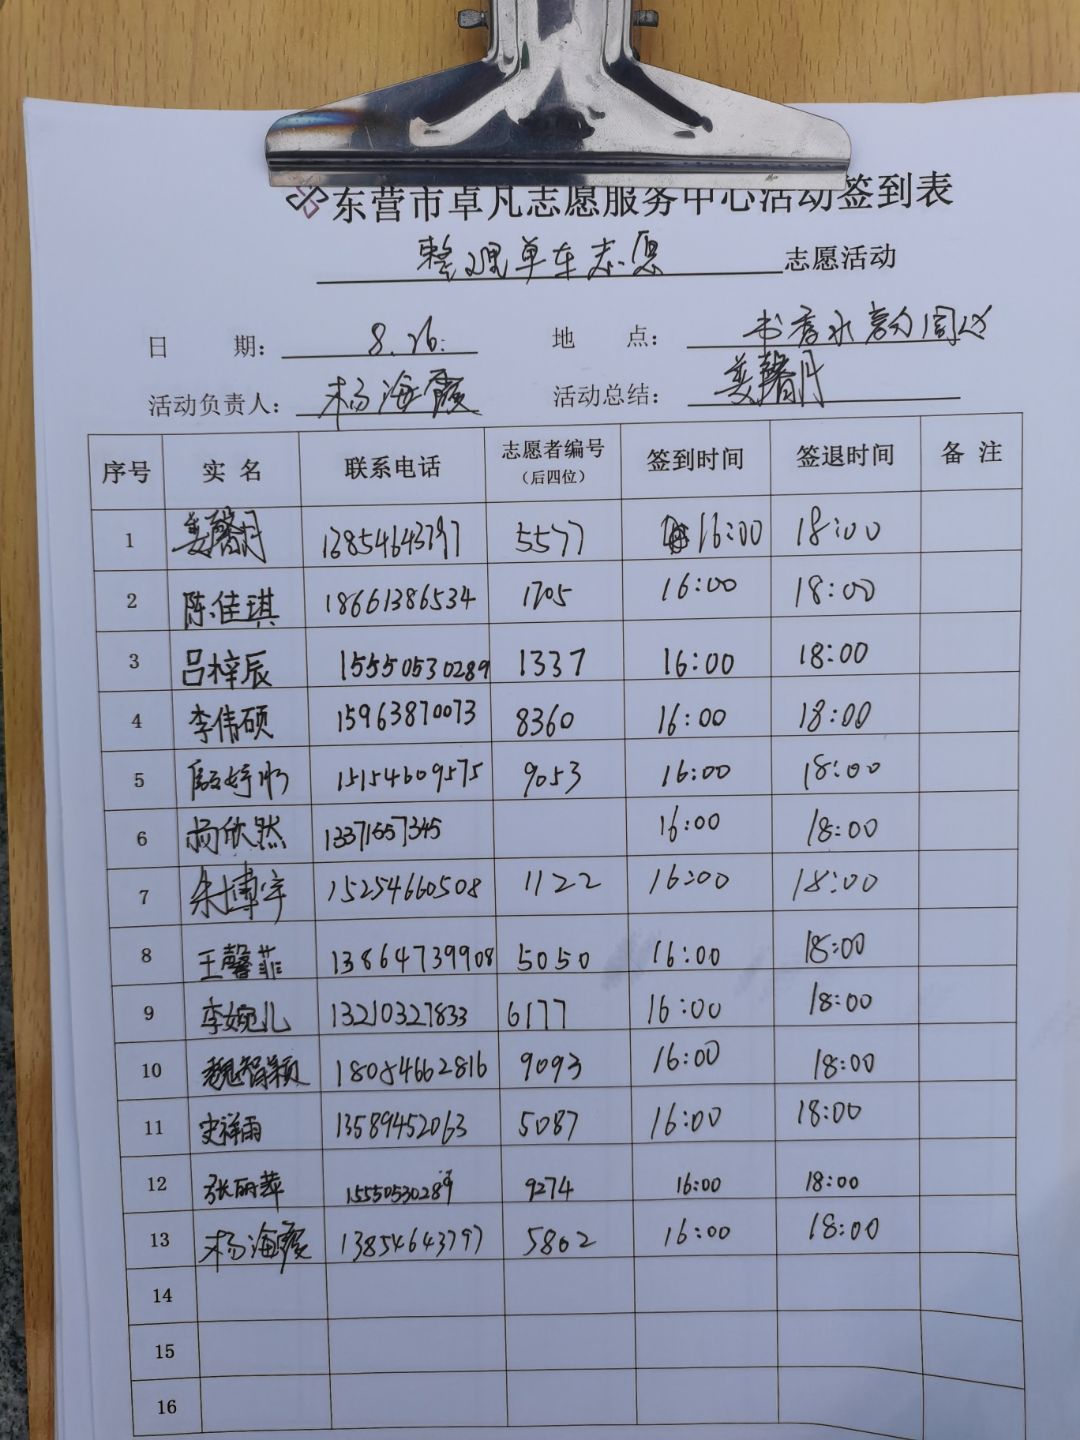 东营市卓凡志愿服务中心活动签到表
整理单车志愿 志愿活动
日 期: 8.26. 地 点: 书香水韵周边
活动负责人: 杨海霞 活动总结: 姜馨月
序号 实名 联系电话 志愿者编号(后四位) 签到时间 签退时间 备注
1 姜馨月 13854643797 5577 16:00 18:00
2 陈佳琪 18661386534 1705 16:00 18:00
3 吕梓辰 15550530289 1337 16:00 18:00
4 李伟硕 15963870073 8360 16:00 18:00
5 15154609575 9053 16:00 18:00
6 杨欣然 13371557345 16:00 18:00
7 朱博宇 15254660508 1122 16:00 18:00
8 王馨菲 13864739908 5050 16:00 18:00
9 李婉儿 13210327833 6177 16:00 18:00
10 魏智颖 18054662816 9093 16:00 18:00
11 史祥雨 13589452063 5087 16:00 18:00
12 张丽萍 15550530289 9274 16:00 18:00
13 杨海霞 13854643797 5802 16:00 18:00
14
15
16